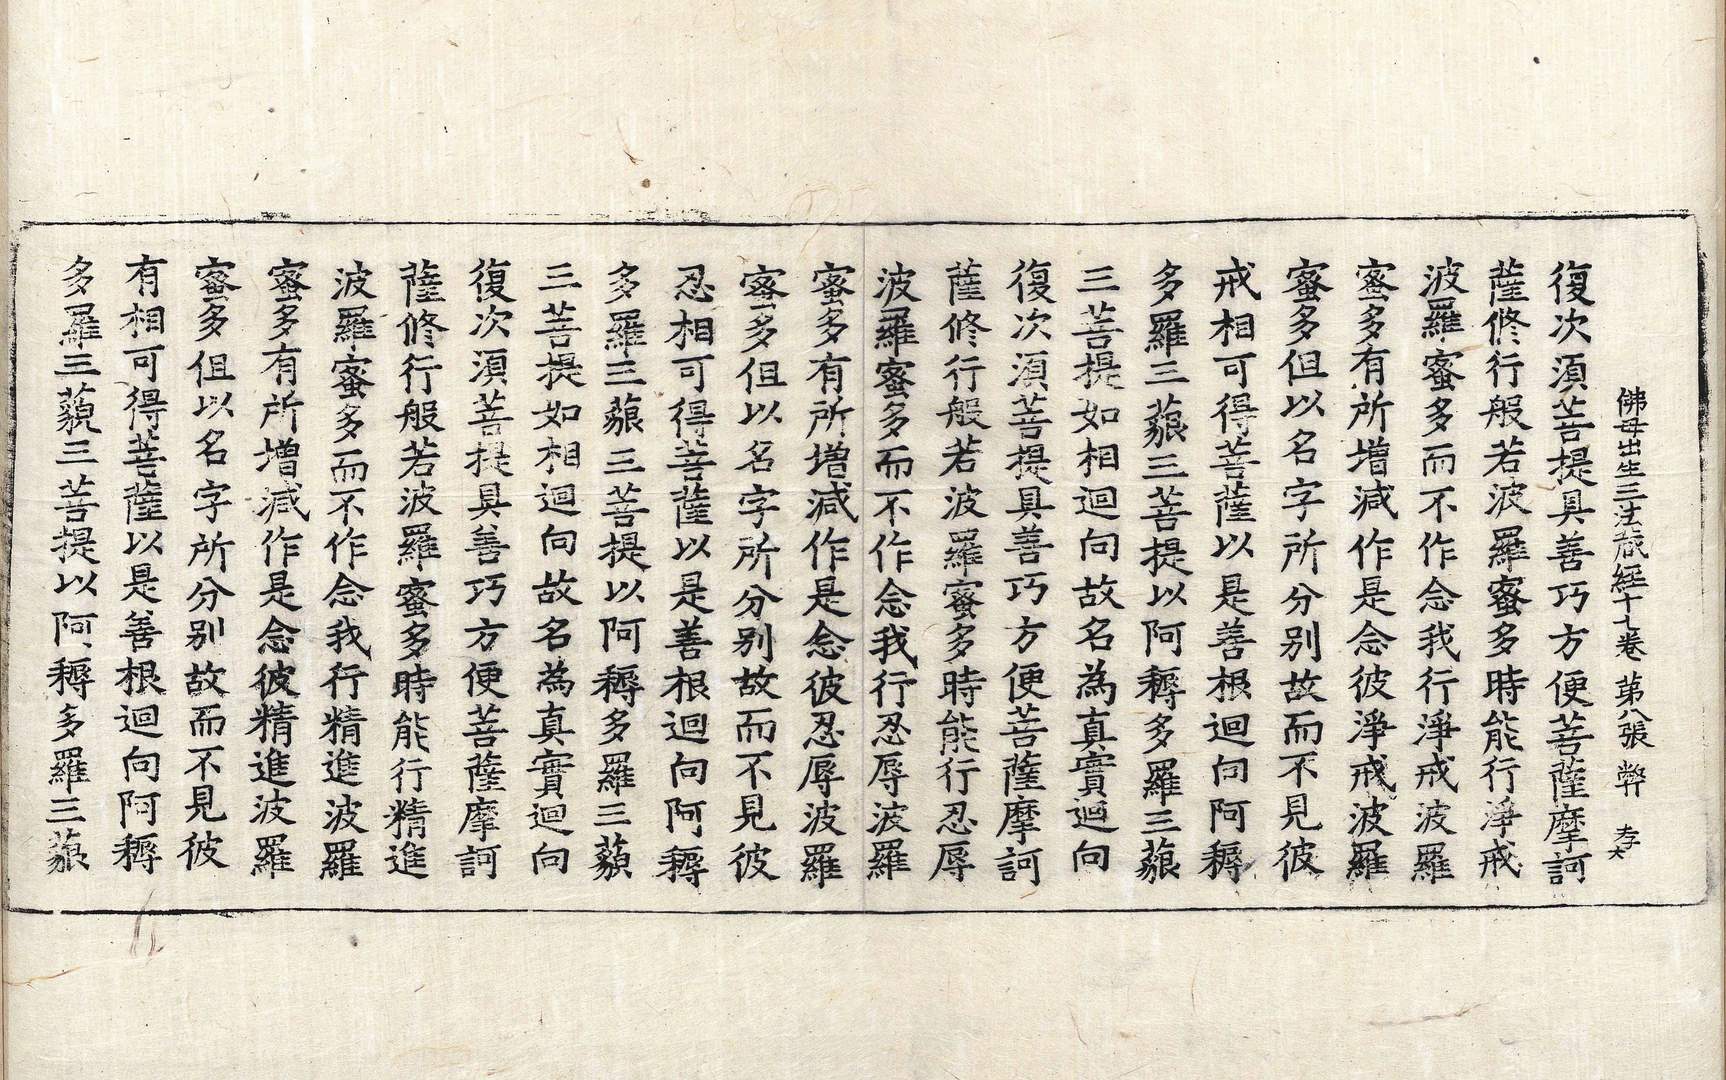 佛母出生三法藏經十七卷 第八張 弊 孝大
復次湏菩提具善巧方便菩薩摩訶
薩修行般若波羅蜜多時能行淨戒
波羅蜜多而不作念我行淨戒波羅
蜜多有所增減作是念彼淨戒波羅
蜜多但以名字所分别故而不見彼
戒相可得菩薩以是善根迴向阿耨
多羅三藐三菩提以阿耨多羅三藐
三菩提如相迴向故名為真實迴向
復次湏菩提具善巧方便菩薩摩訶
薩修行般若波羅蜜多時能行忍辱
波羅蜜多而不作念我行忍辱波羅
蜜多有所增減作是念彼忍辱波羅
蜜多但以名字所分别故而不見彼
忍相可得菩薩以是善根迴向阿耨
多羅三藐三菩提以阿耨多羅三藐
三菩提如相迴向故名為真實迴向
復次湏菩提具善巧方便菩薩摩訶
薩修行般若波羅蜜多時能行精進
波羅蜜多而不作念我行精進波羅
蜜多有所增減作是念彼精進波羅
蜜多但以名字所分别故而不見彼
有相可得菩薩以是善根迴向阿耨
多羅三藐三菩提以阿耨多羅三藐